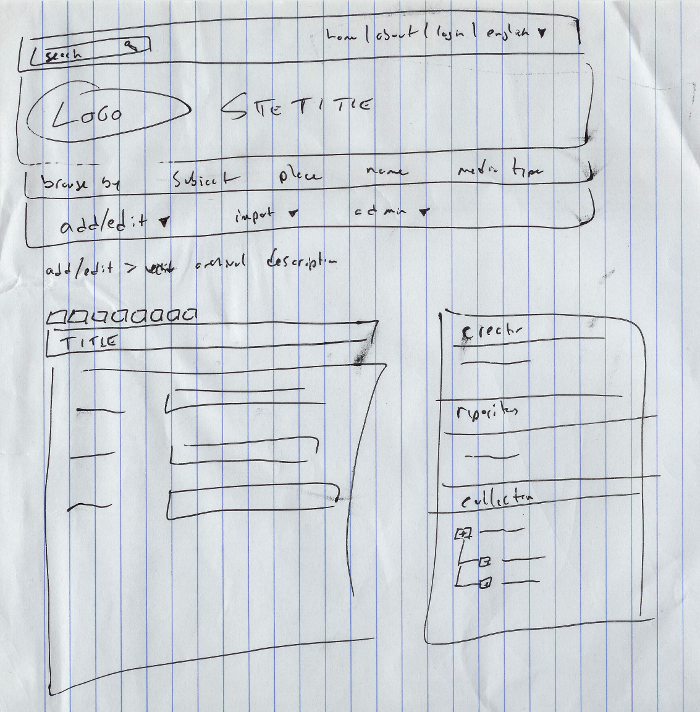 search home | about | login | english ▼
LOGO SITE TITLE
browse by subject place name media type
add/edit ▼ import ▼ admin ▼
add/edit > archival description
TITLE
creator
repository
collection